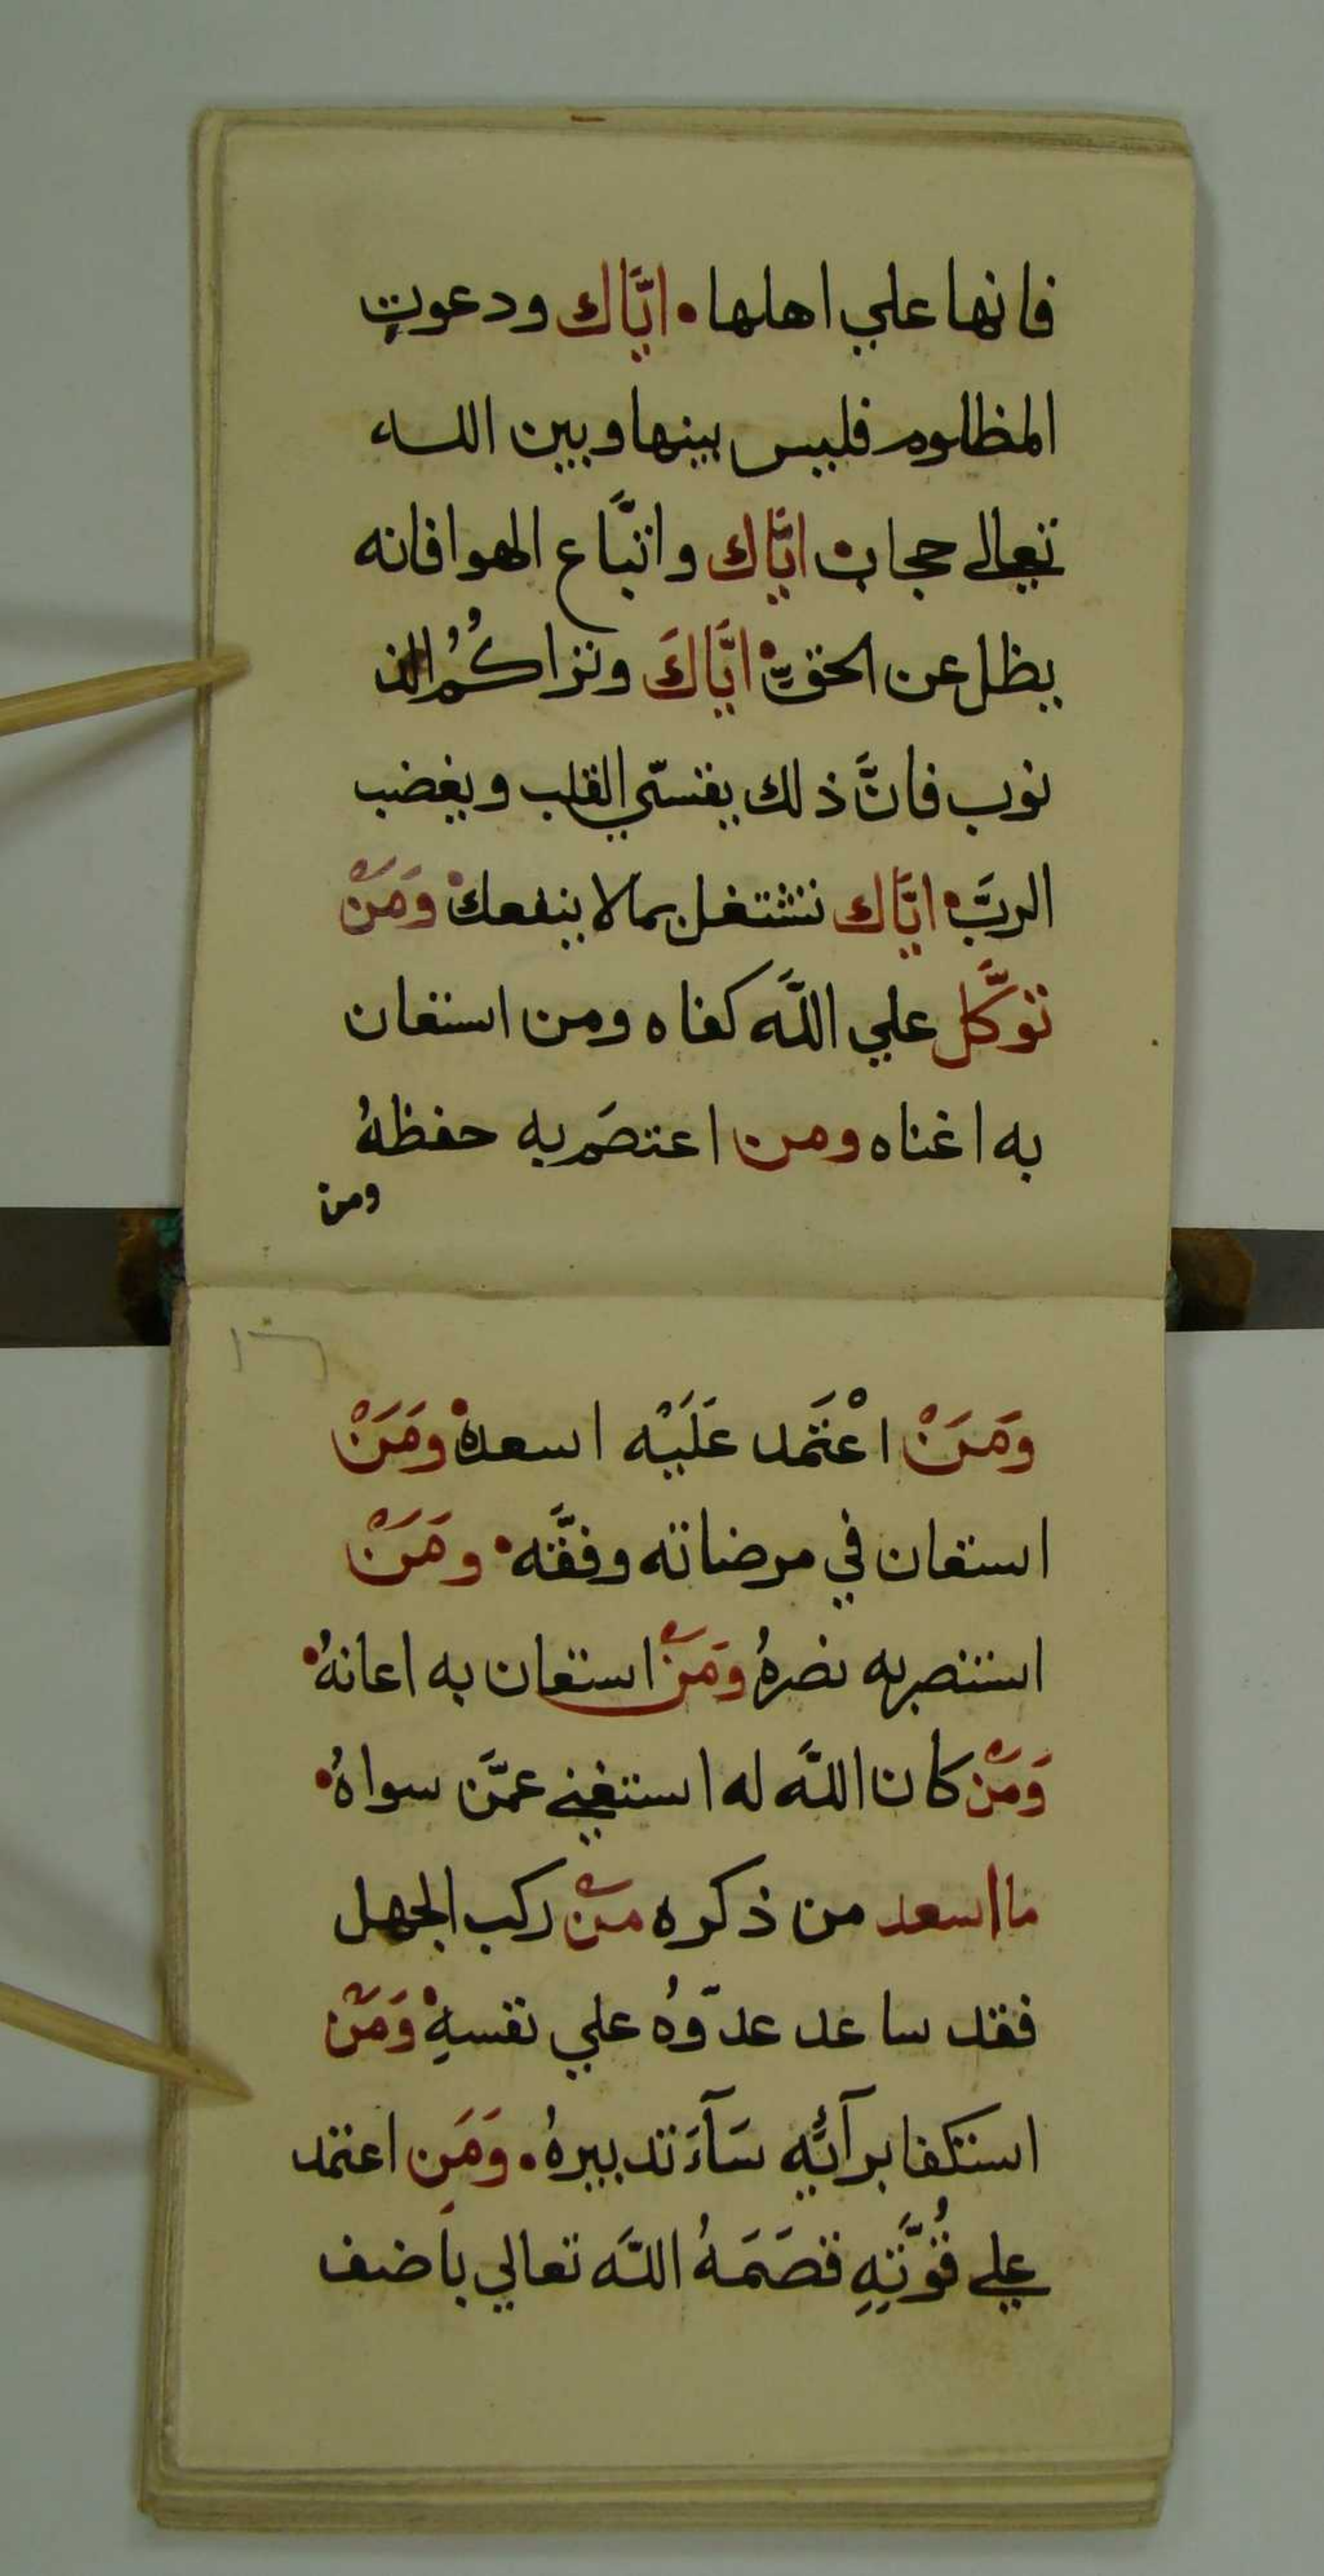 فانها علي اهلها • ايّاك ودعوت
المظلوم فليس بينها وبين الله
تعالي حجاب • ايّاك واتبّاع الهوا فانه
يظل عن الحقّ • ايّاكَ وتراكُمُ الذ
نوب فانَّ ذلك يقسّي القلب ويغضب
الربَّ • ايّاك تشتغل بمالا ينفعك • وَمَنْ
توكَّل علي اللَّه كفاه ومن استعان
به اغناه ومن اعتصَم به حفظهُ
ومن
١٦
وَمَنْ اعْتَمد عَلَيْه اسعده • ومَنْ
استعان في مرضاته وفقَّه • ومَنْ
استنصر به نصرهُ ومَنْ استعان به اعانهُ •
وَمَنْ كان اللَّه له استغني عمَّن سواهُ •
ما اسعد من ذكره منْ ركب الجهل
فقد ساعد عدّوهُ علي نفسهِ • وَمَنْ
استكفا برآئه سَآءَ تدبيرهُ • وَمَن اعتمد
علي قُوَّتهِ قصَمَهُ اللَّه تعالي باضف